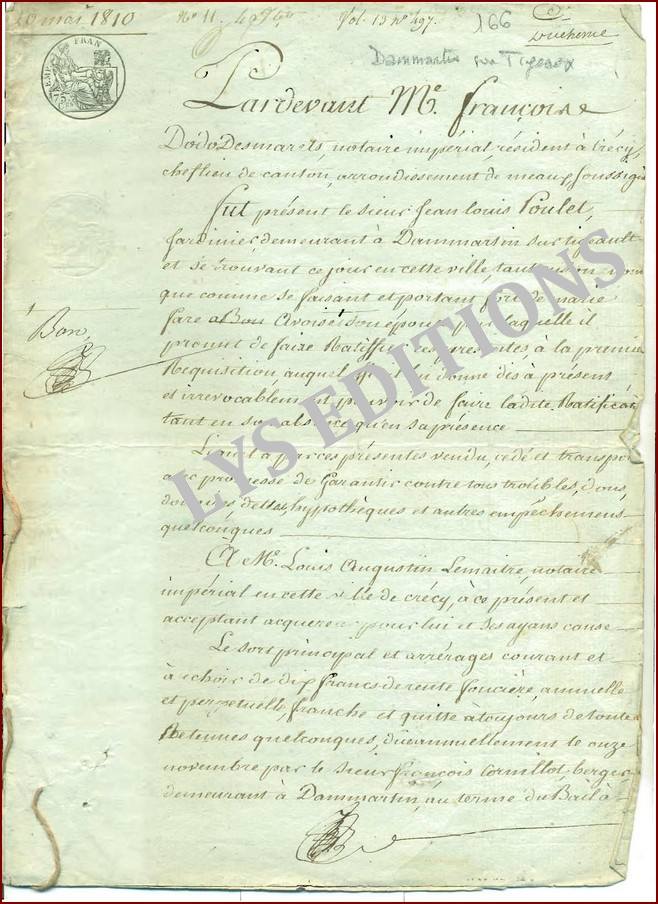 mai 1810
No 11.
Vol. 13 no 497.
166
Ducherne
Dammartin sur Tigeaux
EMP FRAN
75 CEN
Pardevant Me. françois
DodoDesmarets, notaire impérial, résident à Crécy,
cheflieu de canton, arrondissement de meaux, soussigné
fut présent le sieur Jean Louis Poulet,
Jardinier, demeurant à Dammartin sur tigeault
et se trouvant ce jour en cette ville, tant en son nom
que comme se faisant et portant fort de marie
son épouse par laquelle il
Bon
promet de faire Ratiffier ces présentes, à la premiere
Requisition, auquel effet il donne dès à présent
et irrévocablement pouvoir de faire ladite Ratification
tant en son absence qu'en sa présence
Lequel a par ces présentes vendu, cédé et transporté
avec promesse de Garantie contre tous troubles, dons,
douaires, dettes, hypothèques et autres empêchemens
quelconques
A Me. Louis Augustin Lemaitre, notaire
impérial en cette ville de crécy, à ce présent et
acceptant acquereur pour lui et ses ayans cause
Le sort principal et arrérages courant et
à echoir de dix francs de rente foncière, annuelle
et perpetuelle, franche et quitte à toujours de toutes
Retenues quelconques, due annuellement le onze
novembre par le sieur françois Cornillot, berger
demeurant à Dammartin, au terme du Bail à
LYS EDITIONS